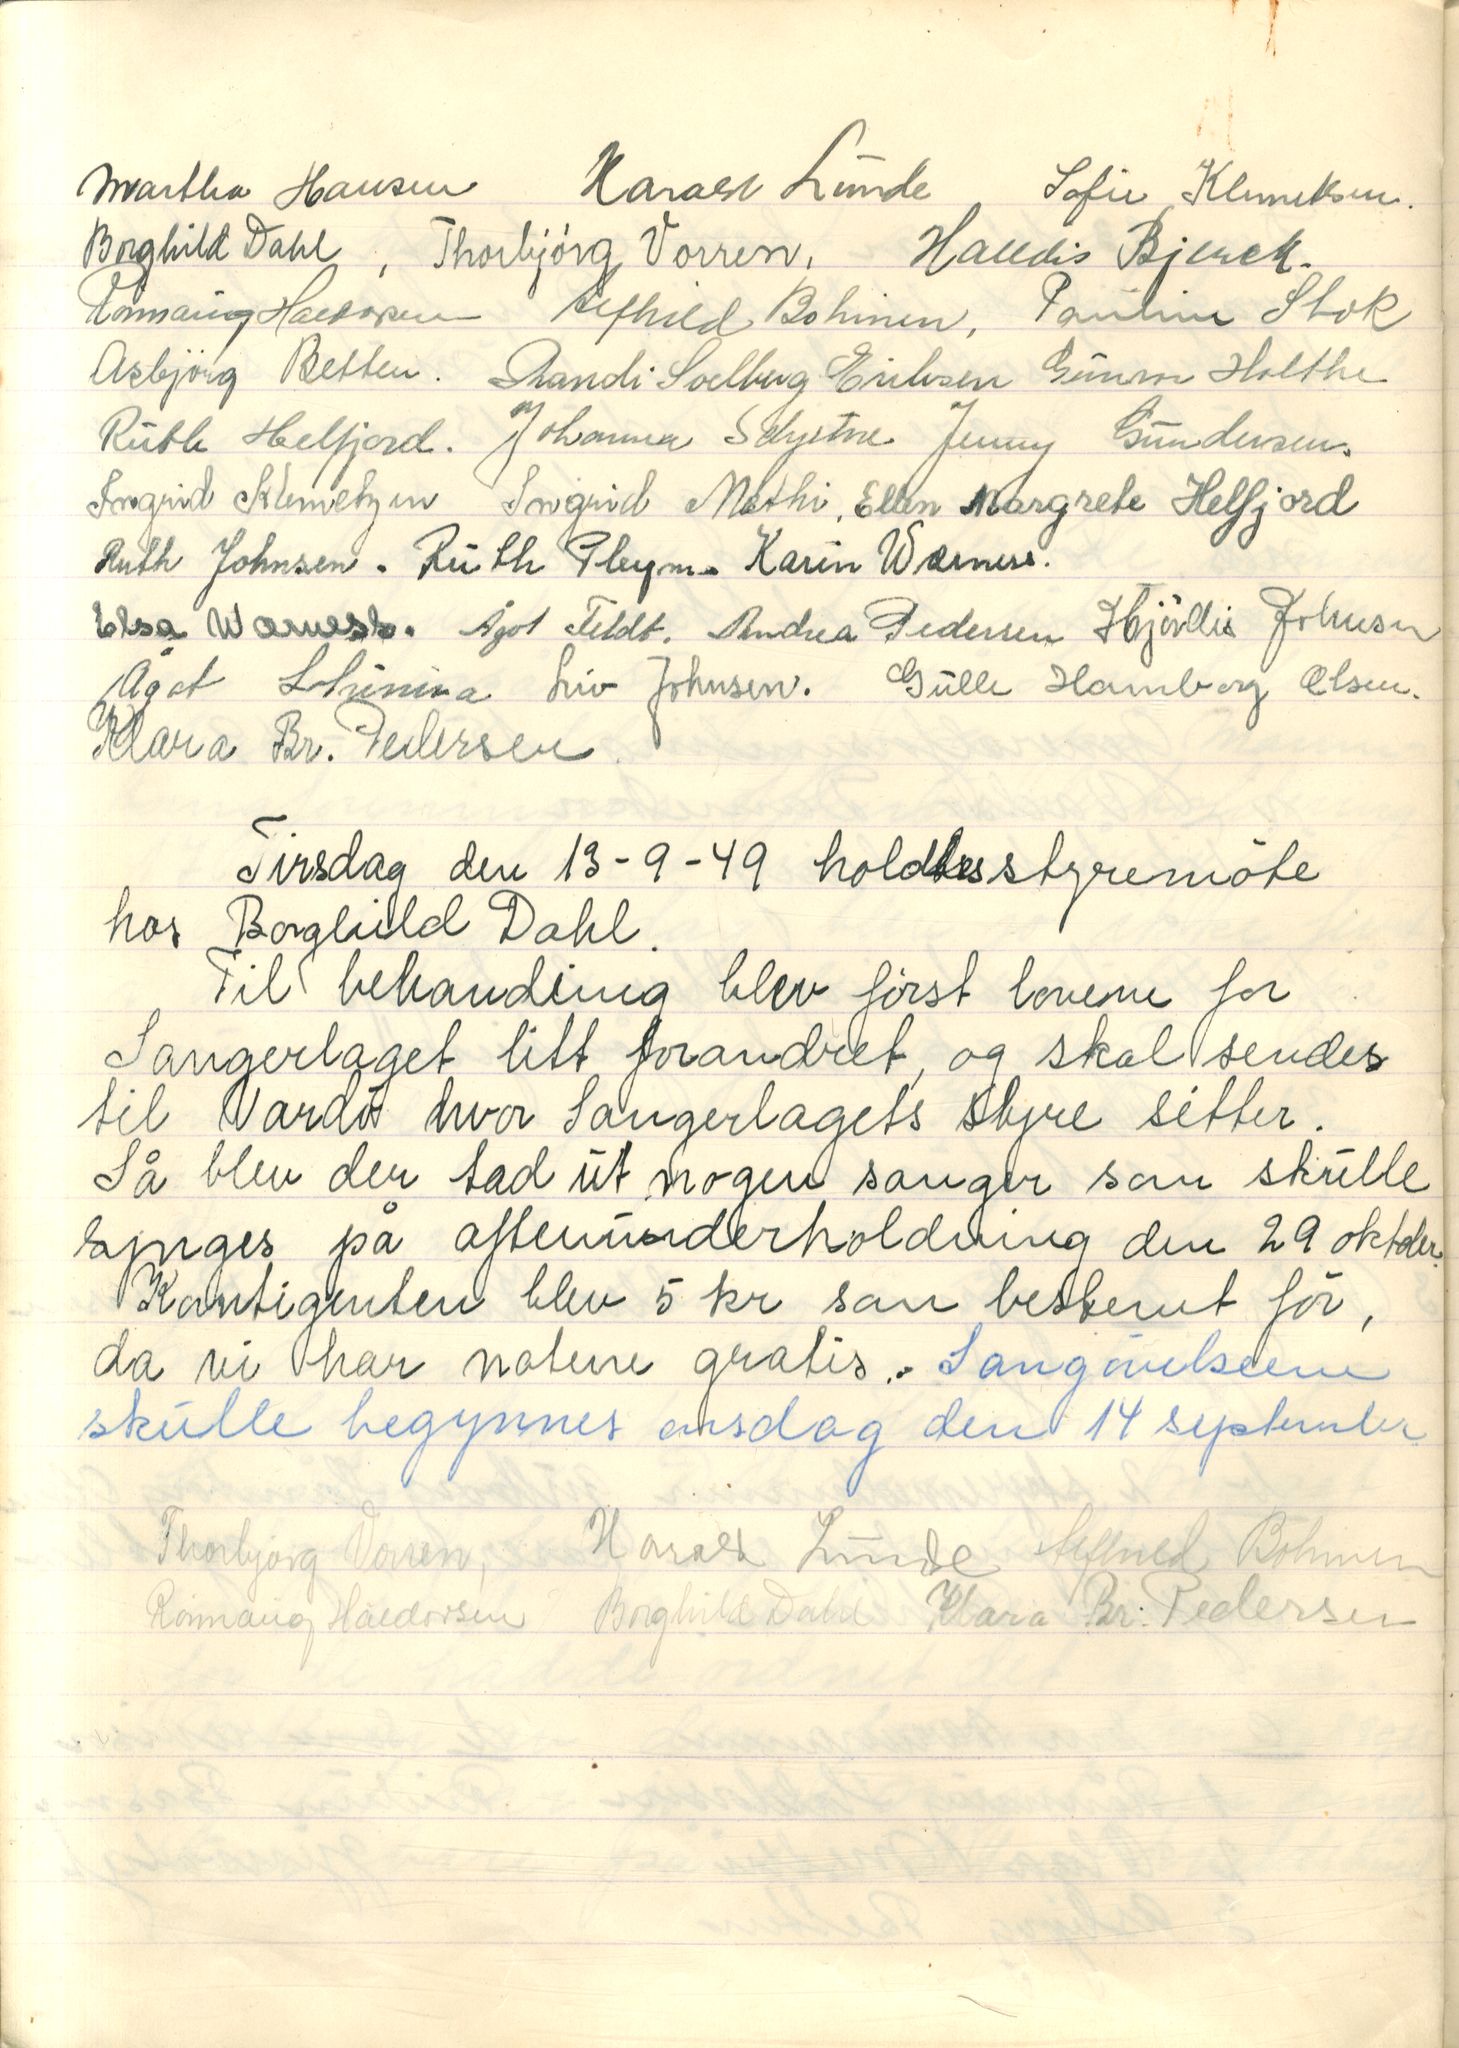 Martha Hansen Harald Lunde Sofie Klemetsen.
Borghild Dahl, Thorbjörg Vorren, Halldis Bjerck.
Rönnaug Haldorsen Alfhild Bohinen, Pauline Stok
Asbjörg Betten. Randi Solberg Eriksen Gunvor Holthe
Ruth Helfjord. Johanna Jenny Gundersen.
Ingrid Klemetzen Ingrid Mathi, Ellen Margrete Helfjord
Ruth Johnsen. Ruth Pleym. Karin Warness.
Elsa Warness. Ågot Feldt. Andrea Pedersen Hjördis Johnsen
Ågot Liv Johnsen. Gulle Hamborg Olsen.
Klara Br. Pedersen
Tirsdag den 13-9-49 holdtes styremöte
hos Borghild Dahl.
Til behandling blev först lovene for
Sangerlaget litt forandret, og skal sendes
til Vardö hvor Sangerlagets styre sitter.
Så blev der tad ut nogen sanger som skulle
synges på aftenunderholdning den 29 oktober.
Kontigenten blev 5 kr som bestemt för,
da vi har notene gratis. Sangövelsene
skulle begynnes onsdag den 14 september
Thorbjörg Vorren, Harald Lunde Alfhild Bohinen
Rönnaug Haldorsen Borghild Dahl Klara Br. Pedersen